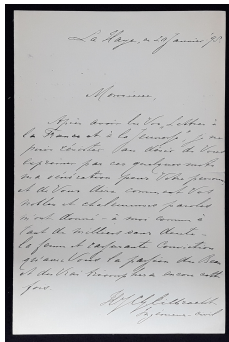 La Haye, ce 20 Janvier '98
Monsieur,
Après avoir lu Vos Lettres à
la France et à la jeunesse, je ne
puis résister au désir de Vous
exprimer par ces quelques mots
ma vénération pour Votre personne
et de Vous dire comment Vos
nobles et paroles
m'ont donné à moi comme à
tant de milliers sans doute
la ferme et conviction
qu'avec Vous la du Beau
et du Vrai triomphera encore cette
fois.